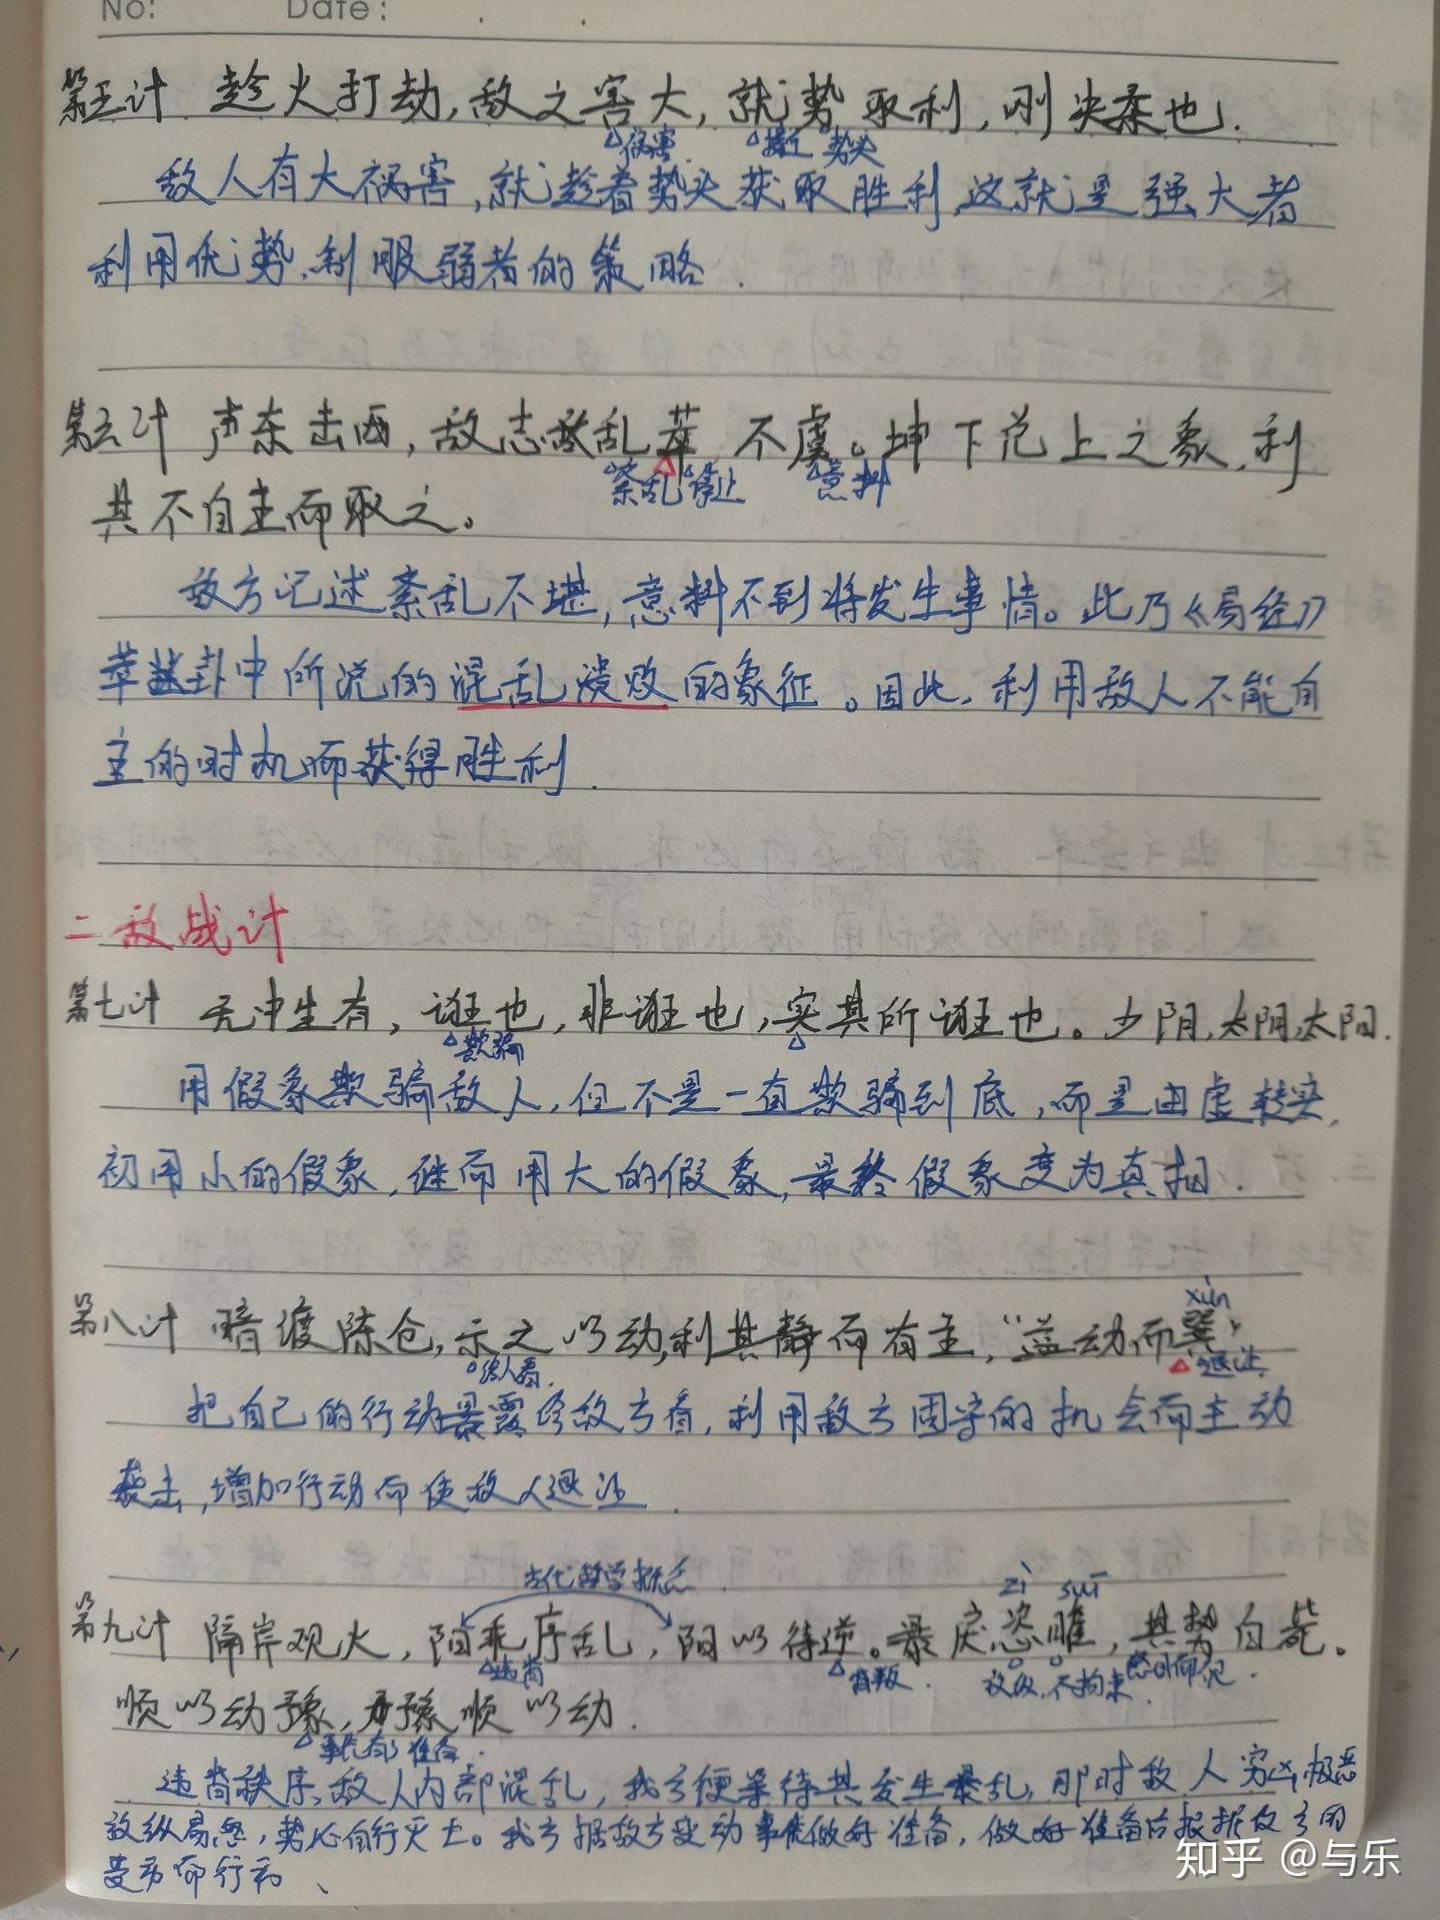 No: Date:
第五计 趁火打劫,敌之害大,就势取利,刚决柔也.
伤害. 接近 势头
敌人有大祸害,就趁着势头获取胜利,这就是强大者
利用优势,制服弱者的策略.
第六计 声东击西,敌志乱萃 不虞。坤下兑上之象,利
紊乱 停止 意料
其不自主而取之。
敌方记述紊乱不堪,意料不到将发生事情。此乃《易经》
萃卦中所说的混乱溃败的象征。因此,利用敌人不能自
主的时机而获得胜利.
二 敌战计
第七计 无中生有,诳也,非诳也,实其所诳也。少阴,太阴,太阳.
欺骗
用假象欺骗敌人,但不是一直欺骗到底,而是由虚转实,
初用小的假象,继而用大的假象,最终假象变为真相.
xùn
第八计 暗渡陈仓,示之以动,利其静而有主,“益动而巽”
给人看. 退让
把自己的行动暴露给敌方看,利用敌方固守的机会而主动
袭击,增加行动而使敌人退让.
古代哲学概念
zì suī
第九计 隔岸观火,阳乖序乱,阴以待逆。暴戾恣睢,其势自毙。
违背 背叛. 放纵,不拘束.
顺以动豫,豫顺以动.
事先有准备.
违背秩序,敌人内部混乱,我方便等待其发生暴乱,那时敌人穷凶极恶
放纵易怒,势必自行灭亡。我方据敌方变动事先做好准备,做好准备后根据敌方的
变动而行动、
知乎 @与乐